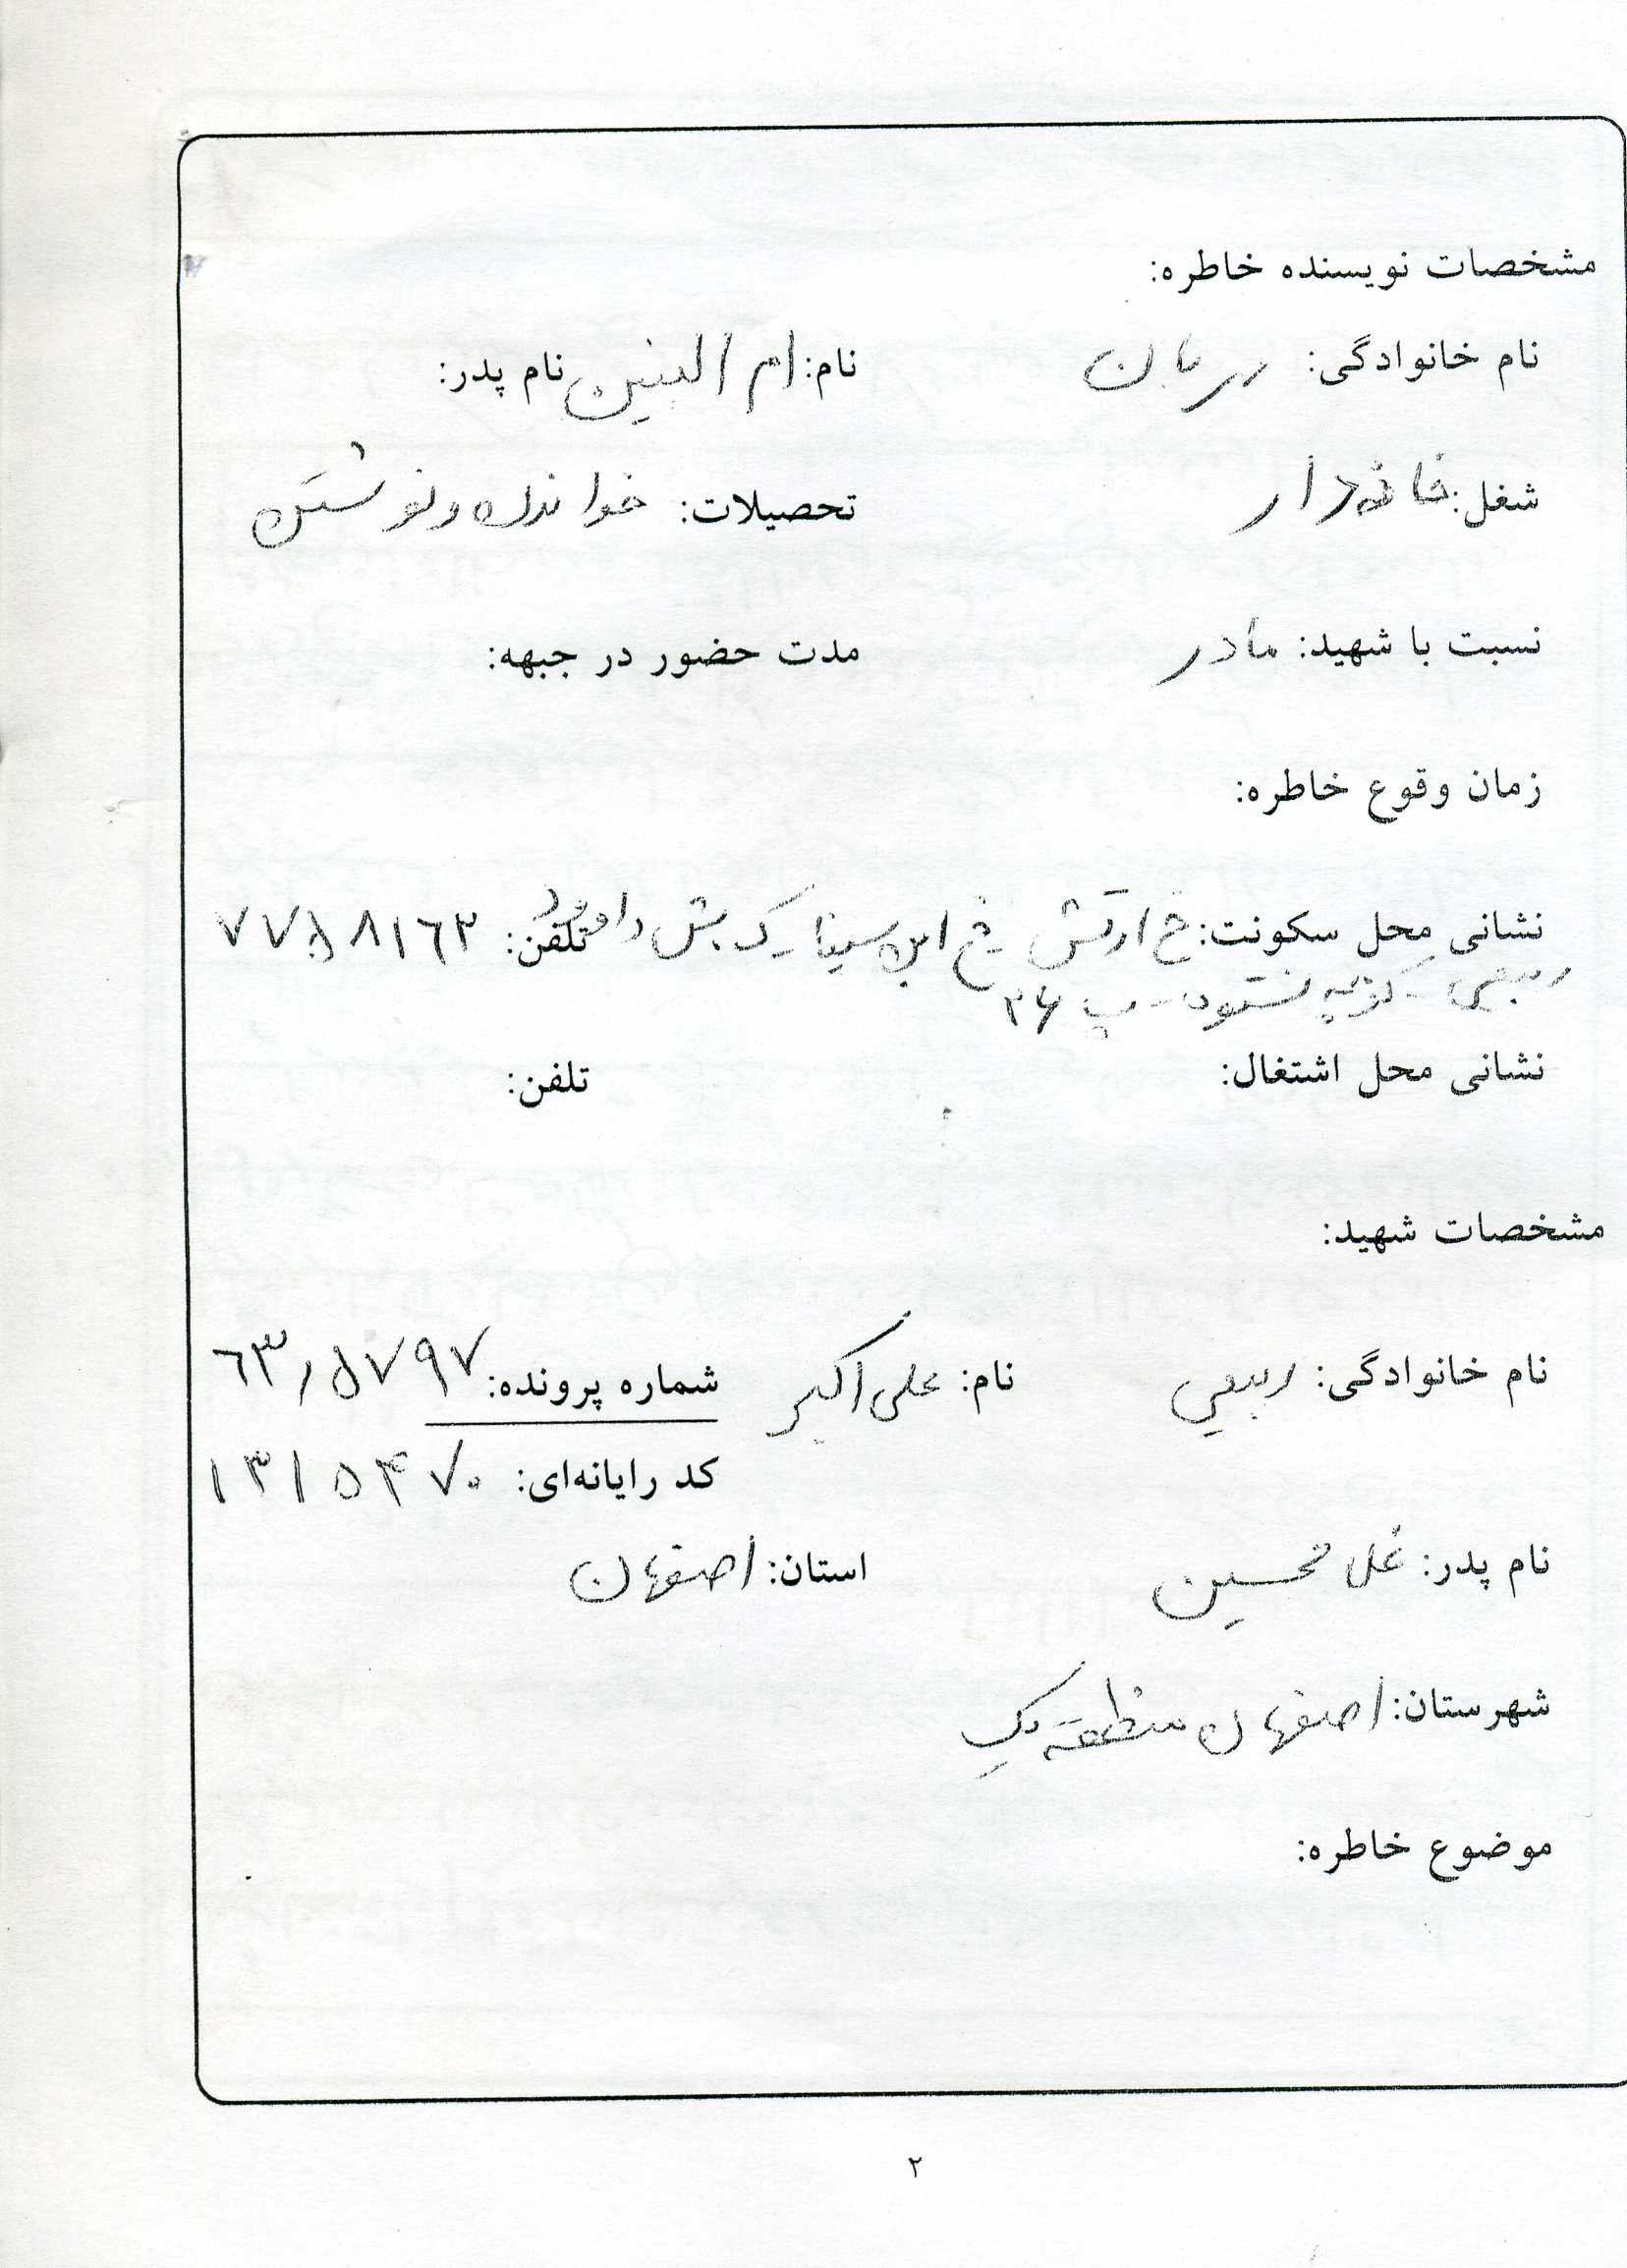 مشخصات نویسنده خاطره:
نام خانوادگی: نام: ام البنین نام پدر:
شغل: خانه‌دار تحصیلات: خواندن و نوشتن
نسبت با شهید: مادر مدت حضور در جبهه:
زمان وقوع خاطره:
نشانی محل سکونت: خ ارتش - خ ابن سینا - ک ش داوود تلفن: ۷۷۵۸۱۶۲
ربیعی - کوچه - پ ۲۶
نشانی محل اشتغال: تلفن:
مشخصات شهید:
نام خانوادگی: ربیعی نام: علی اکبر شماره پرونده: ۶۳/۵۷۹۷
کد رایانه‌ای: ۱۳۱۵۴۷۰
نام پدر: غلامحسین استان: اصفهان
شهرستان: اصفهان منطقه یک
موضوع خاطره:
۲